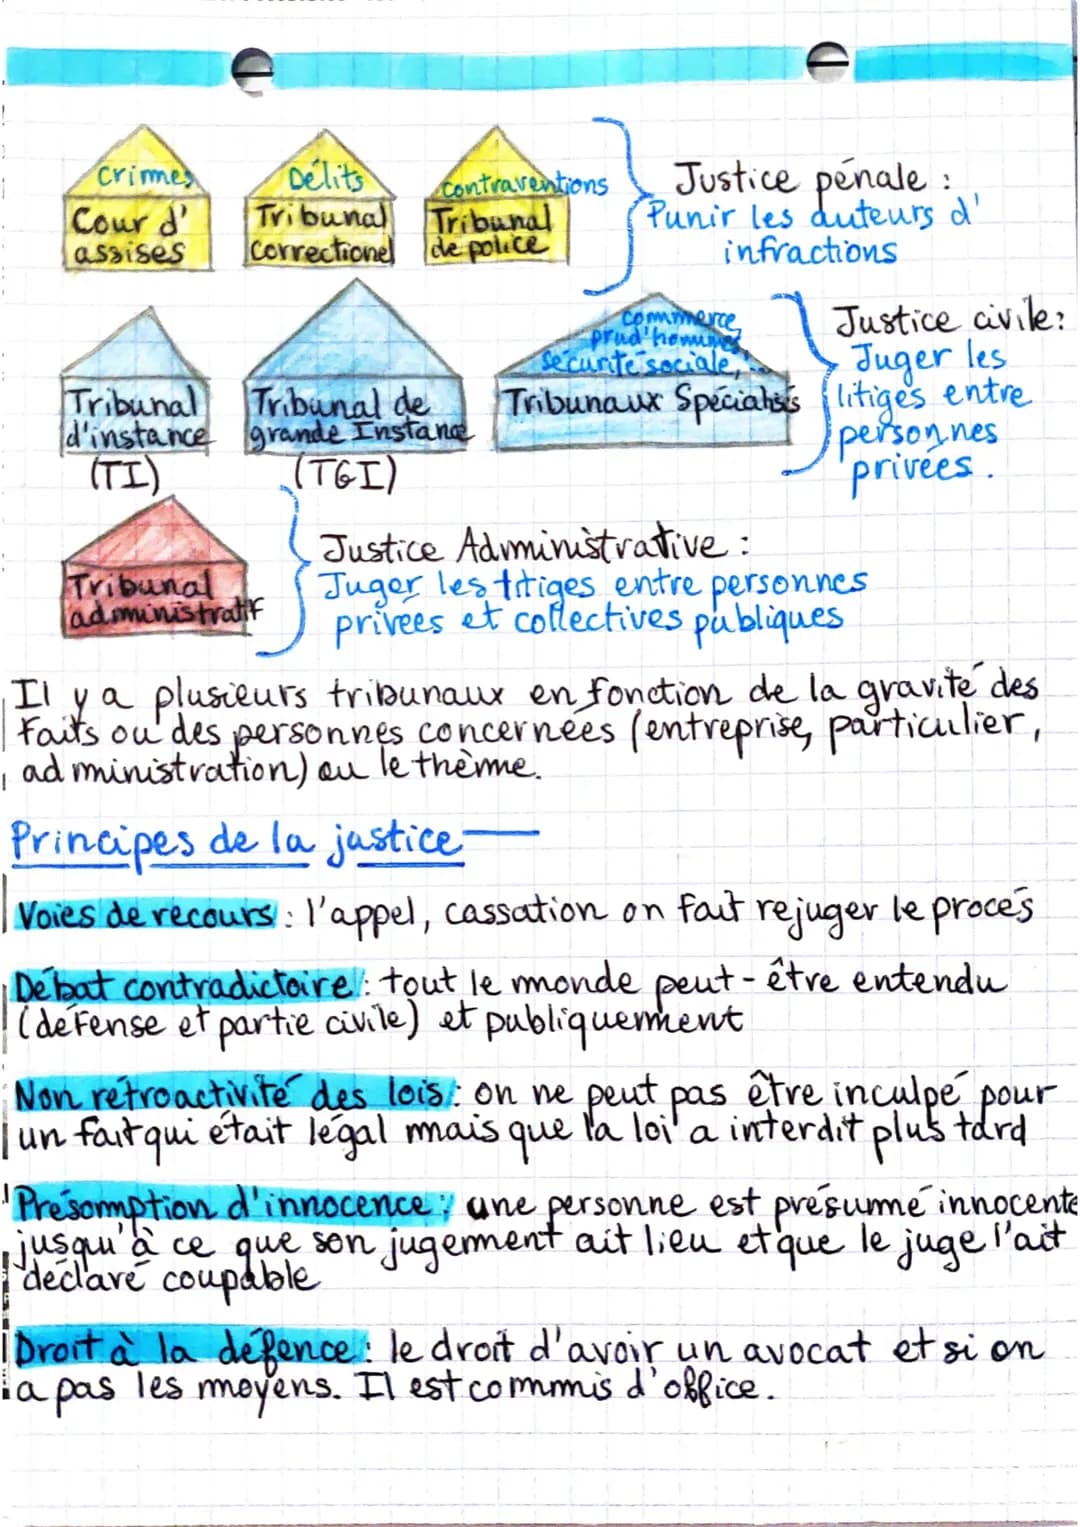 Crimes
Cour d'
assises
Délits
Tribunal
correctionel
contraventions
Tribunal
de police
Justice pénale :
Punir les auteurs d'
infractions
Tribunal
d'instance
(TI)
Tribunal de
grande Instance
(TGI)
commerce,
prud'hommes,
sécurité sociale, ...
Tribunaux Spécialisés
Justice civile:
Juger les
litiges entre
personnes
privées.
Tribunal
administratif
Justice Administrative :
Juger les titiges entre personnes
privées et collectives publiques
Il y a plusieurs tribunaux en fonction de la gravité des
faits ou des personnes concernées (entreprise, particulier,
administration) ou le thème.
Principes de la justice
Voies de recours : l'appel, cassation on fait rejuger le procés
Débat contradictoire : tout le monde peut-être entendu
(défense et partie civile) et publiquement
Non rétroactivité des lois : on ne peut pas être inculpé pour
un fait qui était légal mais que la loi a interdit plus tard
Présomption d'innocence : une personne est présumé innocente
jusqu'à ce que son jugement ait lieu et que le juge l'ait
déclaré coupable
Droit à la défence : le droit d'avoir un avocat et si on
a pas les moyens. Il est commis d'office.